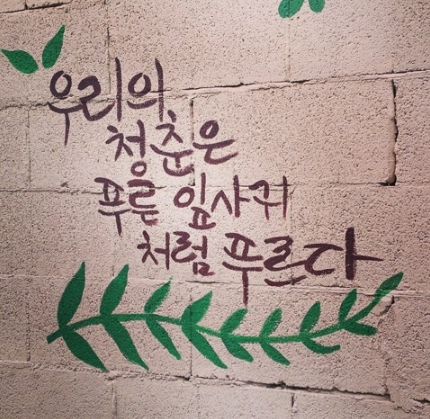 우리의
청춘은
푸른 잎사귀
처럼 푸르다